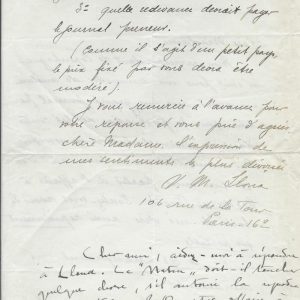 3º quelle redevance devrait payer
le journal preneur.
(Comme il s'agit d'un petit pays,
le prix fixé par vous devra être
modéré).
Je vous remercie à l'avance pour
votre réponse et vous prie d'agréer,
chère Madame, l'expression de
mes sentiments les plus dévoués
V. M. Llona
106 rue de la Tour
Paris-16e
Cher ami, aidez-moi à répondre
à Llona. Le "Matin" doit-il toucher
quelque chose, s'il autorise la repro